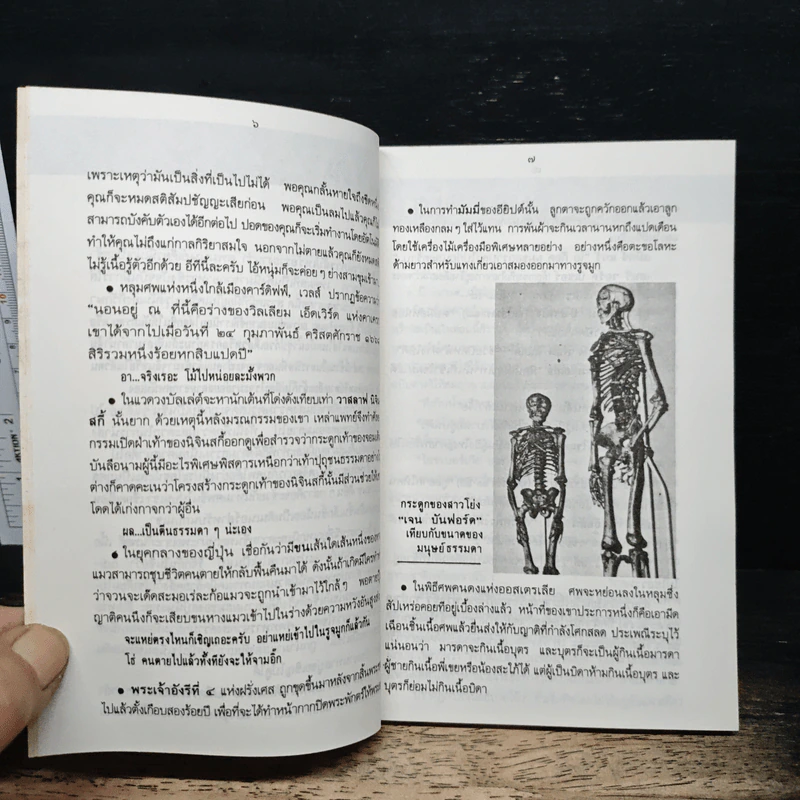 ๖
เพราะเหตุว่ามันเป็นสิ่งที่เป็นไปไม่ได้ พอคุณกลั้นหายใจถึงขีดหนึ่ง
คุณก็จะหมดสติสัมปชัญญะเสียก่อน พอคุณเป็นลมไปแล้วคุณก็
สามารถบังคับตัวเองได้อีกต่อไป ปอดของคุณก็จะเริ่มทำงานโดยอัตโนมัติ
ทำให้คุณไม่ถึงแก่กาลกิริยาสมใจ นอกจากไม่ตายแล้วคุณก็ยังหมดสติ
ไม่รู้เนื้อรู้ตัวอีกด้วย อีทีนี้ละครับ ไอ้หนุ่มก็จะค่อย ๆ ย่างสามขุมเข้ามา
● หลุมศพแห่งหนึ่งใกล้เมืองคาร์ดิฟฟ์, เวลส์ ปรากฏข้อความ
“นอนอยู่ ณ ที่นี้คือร่างของวิลเลียม เอ็ดเวิร์ด แห่งคาเคร
เขาได้จากไปเมื่อวันที่ ๒๔ กุมภาพันธ์ คริสตศักราช ๑๖๖๘
สิริรวมหนึ่งร้อยหกสิบแปดปี”
อา...จริงเรอะ โม้ไปหน่อยละมั้งพวก
● ในแวดวงบัลเล่ต์จะหานักเต้นที่โด่งดังเทียบเท่า วาสลาฟ นิจิน
สกี้ นั้นยาก ด้วยเหตุนี้หลังมรณกรรมของเขา เหล่าแพทย์จึงทำศัลย
กรรมเปิดฝ่าเท้าของนิจินสกี้ออกดูเพื่อสำรวจว่ากระดูกเท้าของจอม
บันลือนามผู้นี้มีอะไรพิเศษพิสดารเหนือกว่าเท้าปุถุชนธรรมดาอย่าง
ต่างก็คาดคะเนว่าโครงสร้างกระดูกเท้าของนิจินสกี้นั้นมีส่วนช่วยให้
โดดได้เก่งกาจกว่าผู้อื่น
ผล...เป็นตีนธรรมดา ๆ น่ะเอง
● ในยุคกลางของญี่ปุ่น เชื่อกันว่ามีขนเส้นใดเส้นหนึ่งของหาง
แมวสามารถชุบชีวิตคนตายให้กลับฟื้นคืนมาได้ ดังนั้นถ้าเกิดมีใครทำ
ว่าจวนจะเด็ดสะมอเร่ละก้อแมวจะถูกนำเข้ามาไว้ใกล้ ๆ พอตาย
ญาติคนนึงก็จะเสียบขนหางแมวเข้าไปในร่างด้วยความหวังอันสูง
จะแหย่ตรงไหนก็เชิญเถอะครับ อย่าแหย่เข้าไปในรูจมูกก็แล้วกัน
โธ่ คนตายไปแล้วทั้งทียังจะให้จามอี๊ก
● พระเจ้าอังรีที่ ๔ แห่งฝรั่งเศส ถูกขุดขึ้นมาหลังจากสิ้นพระ
ไปแล้วตั้งเกือบสองร้อยปี เพื่อที่จะได้ทำหน้ากากปิดพระพักตร์ให้
๗
● ในการทำมัมมี่ของอียิปต์นั้น ลูกตาจะถูกควักออกแล้วเอาลูก
ทองเหลืองกลม ๆ ใส่ไว้แทน การพันผ้าจะกินเวลานานหกถึงแปดเดือน
โดยใช้เครื่องไม้เครื่องมือพิเศษหลายอย่าง อย่างหนึ่งคือตะขอโลหะ
ด้ามยาวสำหรับแทงเกี่ยวเอาสมองออกมาทางรูจมูก
กระดูกของสาวโย่ง
“เจน บันฟอร์ด”
เทียบกับขนาดของ
มนุษย์ธรรมดา
● ในพิธีศพคนดงแห่งออสเตรเลีย ศพจะหย่อนลงในหลุมซึ่ง
สัปเหร่อคอยทีอยู่เบื้องล่างแล้ว หน้าที่ของเขาประการหนึ่งก็คือเอามีด
เฉือนชิ้นเนื้อศพแล้วยื่นส่งให้กับญาติที่กำลังโศกสลด ประเพณีระบุไว้
แน่นอนว่า มารดาจะกินเนื้อบุตร และบุตรก็จะเป็นผู้กินเนื้อมารดา
ผู้ชายกินเนื้อพี่เขยหรือน้องสะใภ้ได้ แต่ผู้เป็นบิดาห้ามกินเนื้อบุตร และ
บุตรก็ย่อมไม่กินเนื้อบิดา